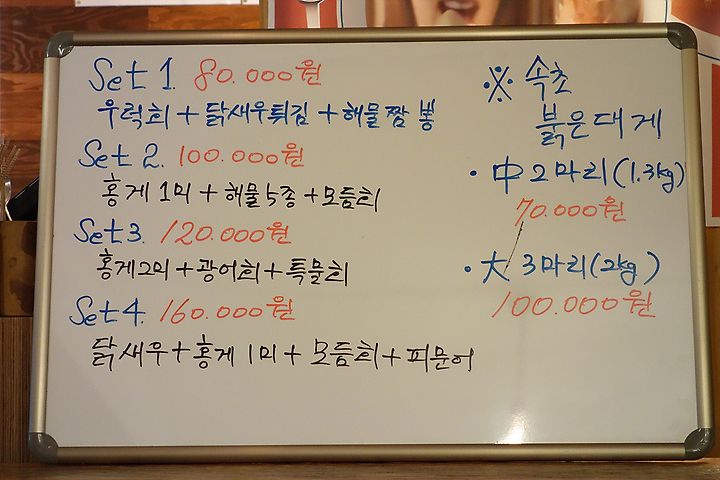 Set 1. 80.000원
우럭회 + 닭새우튀김 + 해물짬뽕
Set 2. 100.000원
홍게 1미 + 해물5종 + 모듬회
Set 3. 120.000원
홍게2미 + 광어회 + 특물회
Set 4. 160.000원
닭새우 + 홍게 1미 + 모듬회 + 피문어
※ 속초
붉은대게
· 中 2마리(1.3kg)
70.000원
· 大 3마리(2kg)
100.000원